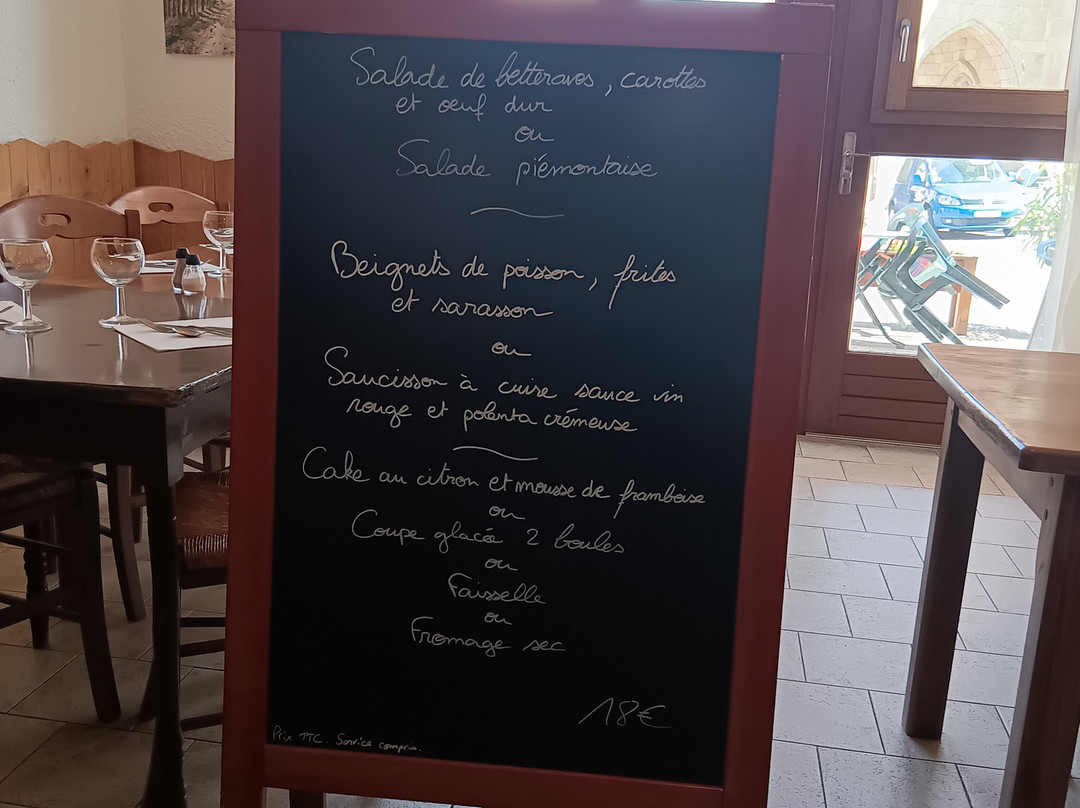 Salade de betteraves, carottes
et œuf dur
ou
Salade piémontaise
Beignets de poisson, frites
et sarasson
ou
Saucisson à cuire sauce vin
rouge et polenta crémeuse
Cake au citron et mousse de framboise
ou
Coupe glacée 2 boules
ou
Faisselle
ou
Fromage sec
18€
Prix TTC. Service compris.